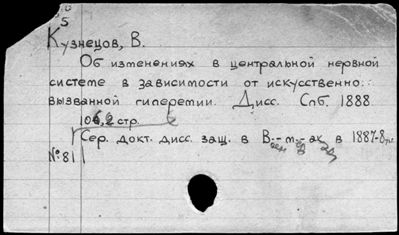 5
Кузнецов, В.
Об изменениях в центральной нервной
системе в зависимости от искусственно
вызванной гиперемии. Дисс. Спб. 1888.
106, 2 стр.
Сер. докт. дисс. защ. в В.-м.-ак. в 1887-8
№ 81